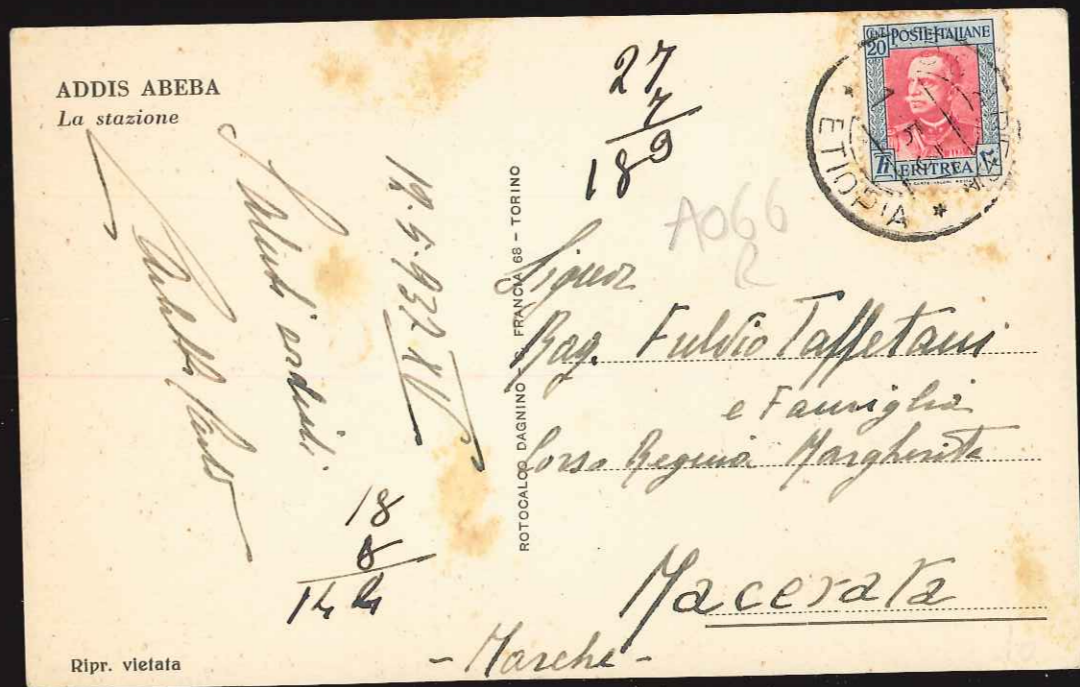 ADDIS ABEBA
La stazione
Saluti cordiali
19.5.937 XV
18
8
144
Ripr. vietata
ROTOCALCO DAGNINO - C. FRANCIA 68 - TORINO
27
7
189
A066
R
CENT 20 POSTE ITALIANE
ERITREA
ETIOPIA
Signor
Rag. Fulvio Taffetani
e Famiglia
Corso Regina Margherita
Macerata
- Marche -